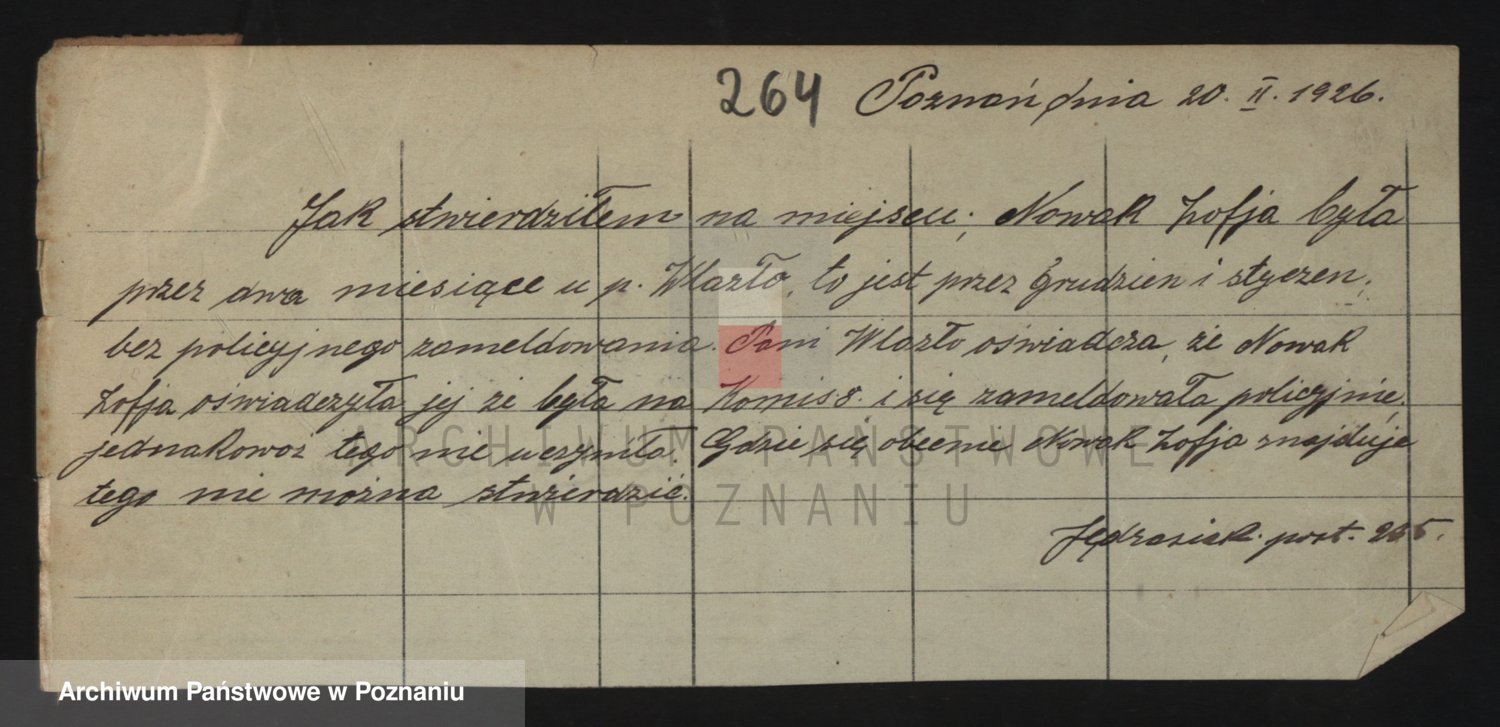 264 Poznań dnia 20. II. 1926.
Jak stwierdziłem na miejscu, Nowak Zofja była
przez dwa miesiące u p. Wlazło, to jest przez Grudzien i styczen,
bez policyjnego zameldowania. Pani Wlazło oświadcza, że Nowak
Zofja oświadczyła jej że była na Komiss. i się zameldowała policyjnie,
jednakowoż tego nie uczyniła. Gdzie się obecnie Nowak Zofja znajduje
tego nie można stwierdzić.
Jędrasiak. post.
ARCHIWUM PAŃSTWOWE
W POZNANIU
Archiwum Państwowe w Poznaniu